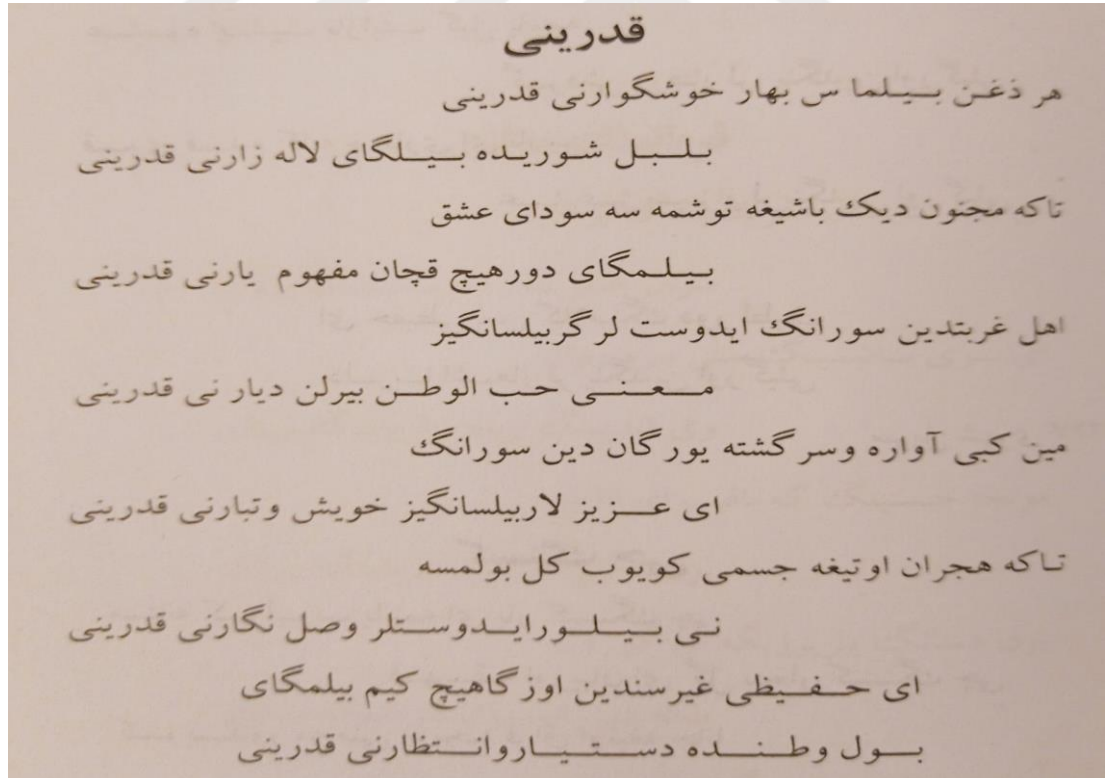 قدرینی
هر ذغن بیلما س بهار خوشگوارنی قدرینی
بلبل شوریده بیلگای لاله زارنی قدرینی
تاکه مجنون دیک باشیغه توشمه سه سودای عشق
بیلمگای دورهیچ قچان مفهوم یارنی قدرینی
اهل غربتدین سورانگ ایدوست لر گربیلسانگیز
معنی حب الوطن بیرلن دیار نی قدرینی
مین کبی آواره وسر گشته یور گان دین سورانگ
ای عزیز لاربیلسانگیز خویش وتبارنی قدرینی
تاکه هجران اوتیغه جسمی کویوب کل بولمسه
نی بیلورایدوستلر وصل نگارنی قدرینی
ای حفیظی غیرسندین اوز گاهیچ کیم بیلمگای
بول وطنده دستیاروانتظارنی قدرینی